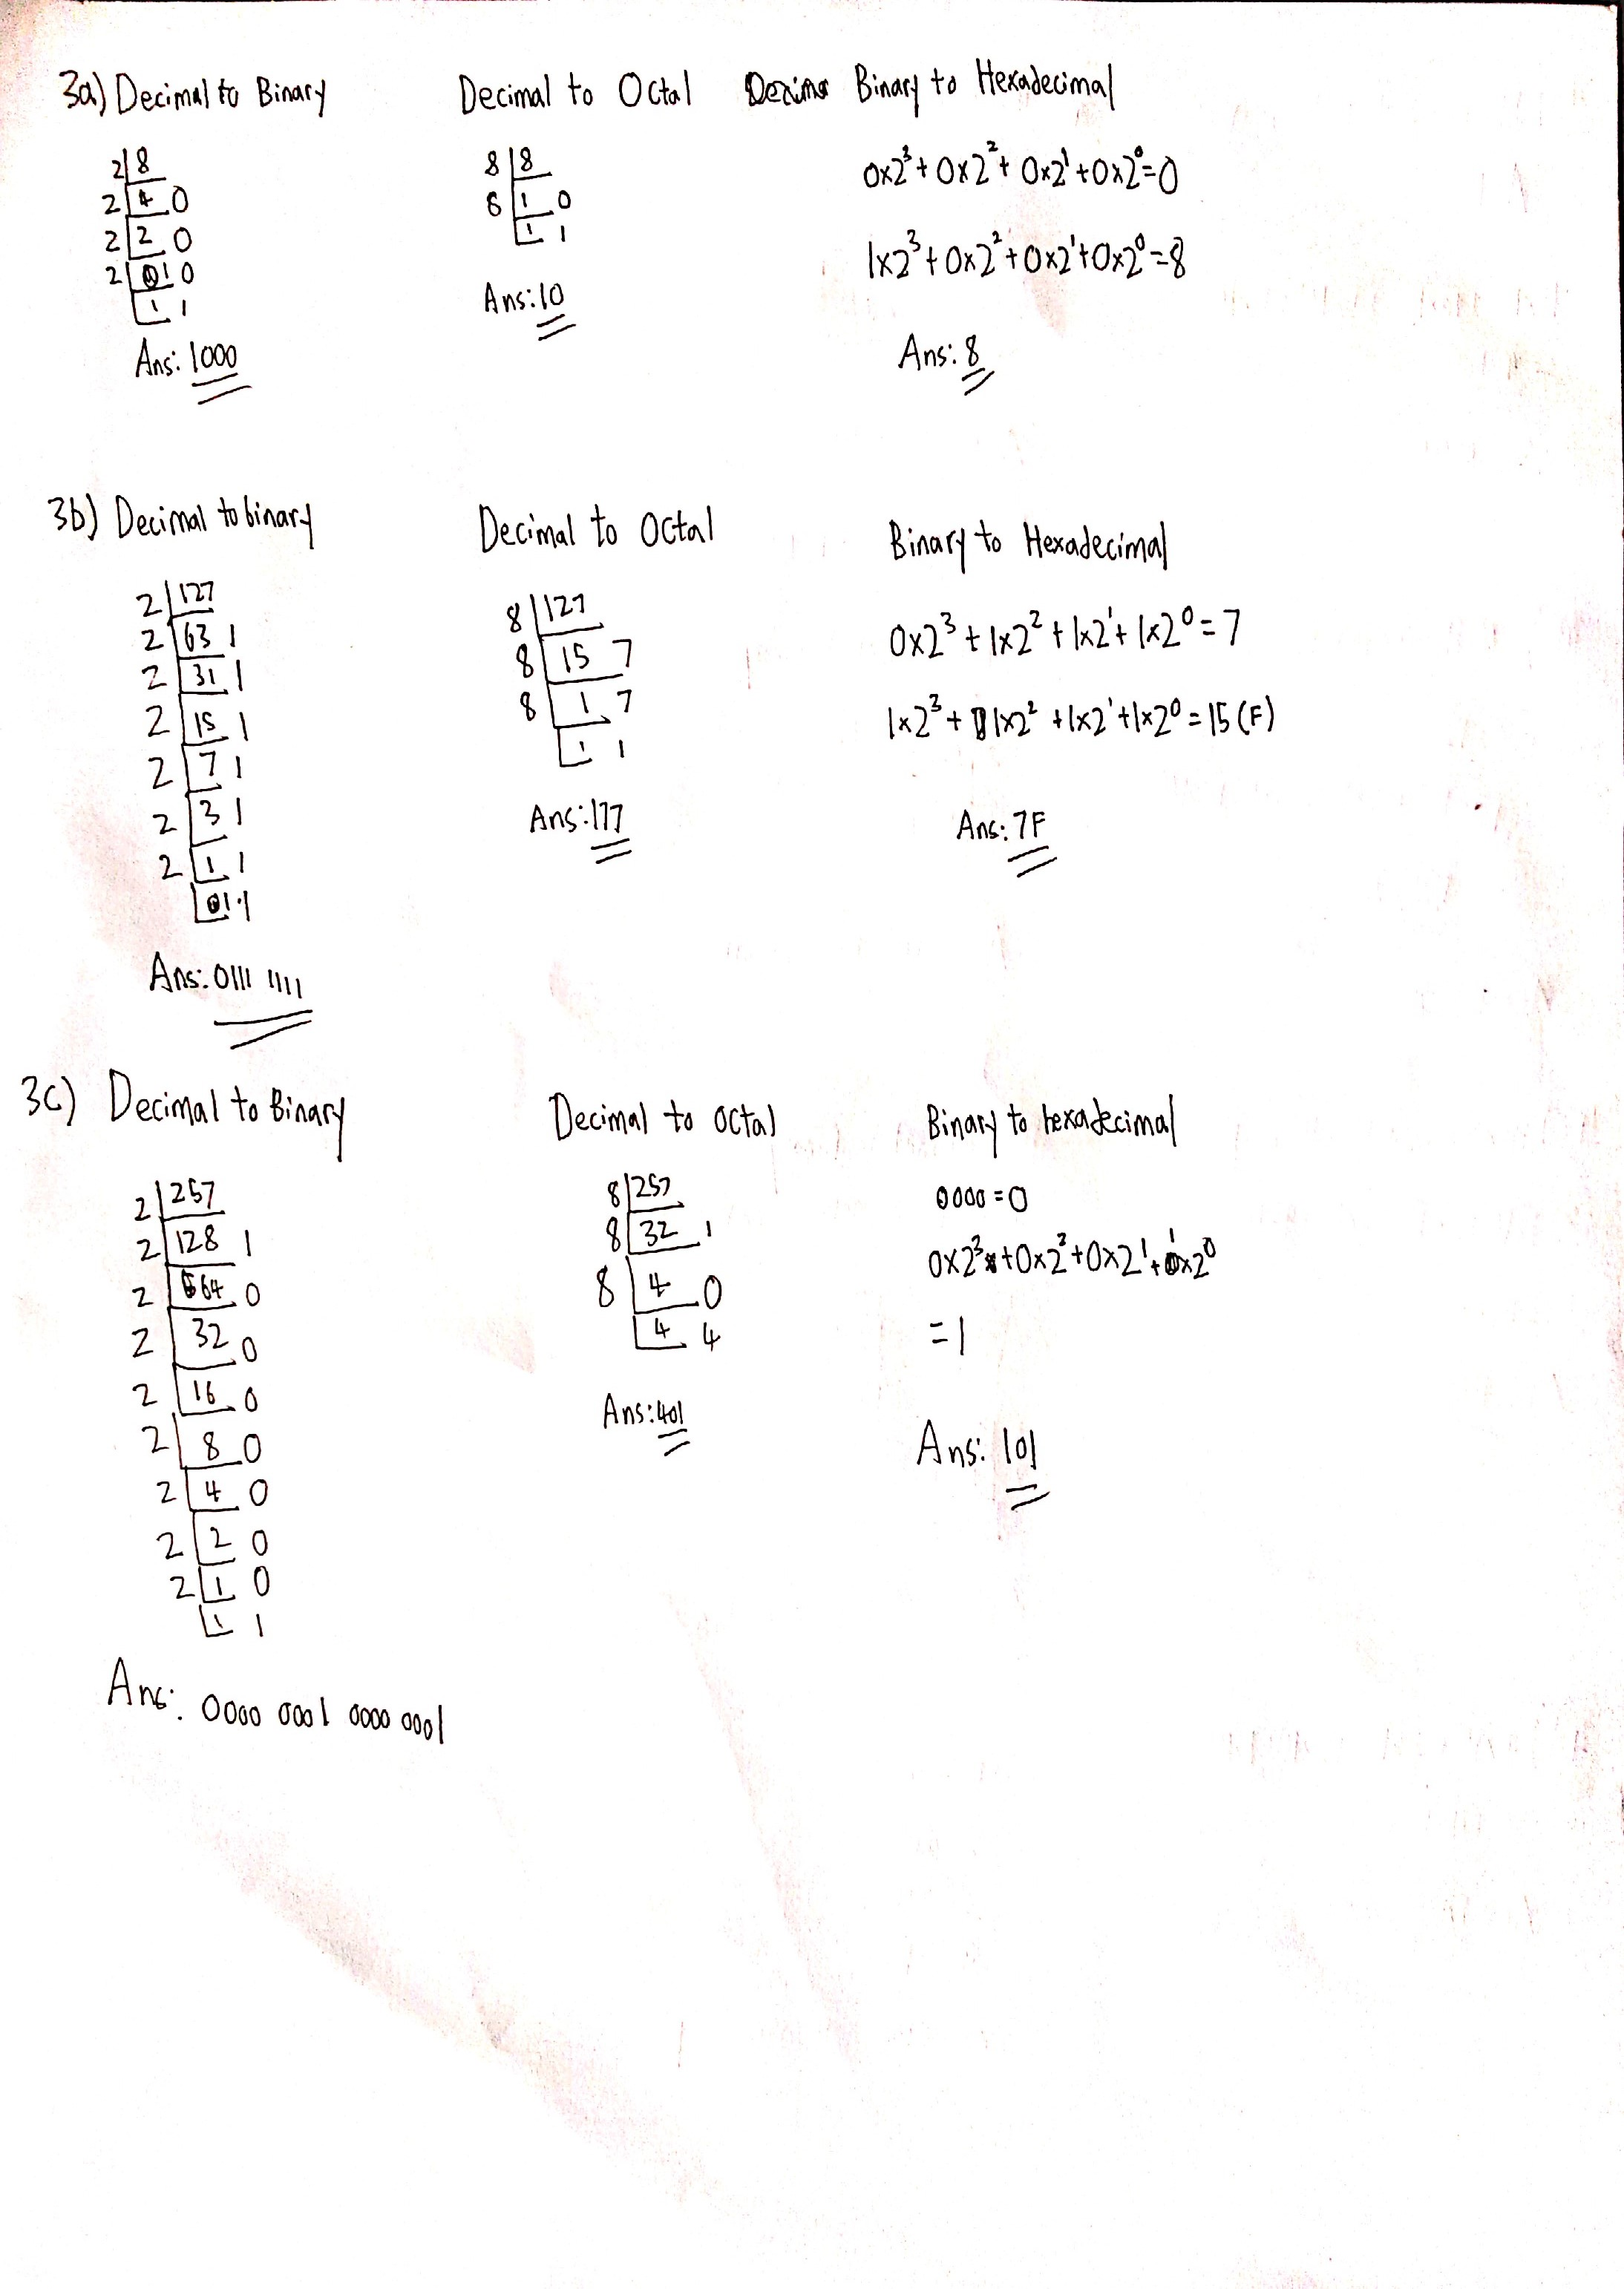 3a) Decimal to Binary
2 8
2 4 0
2 2 0
2 1 0
1 1
Ans: 1000
Decimal to Octal
8 8
8 1 0
1 1
Ans: 10
Binary to Hexadecimal
0x2³ + 0x2² + 0x2¹ + 0x2⁰ = 0
1x2³ + 0x2² + 0x2¹ + 0x2⁰ = 8
Ans: 8
3b) Decimal to binary
2 127
2 63 1
2 31 1
2 15 1
2 7 1
2 3 1
2 1 1
1 1
Ans: 0111 1111
Decimal to Octal
8 127
8 15 7
8 1 7
1 1
Ans: 177
Binary to Hexadecimal
0x2³ + 1x2² + 1x2¹ + 1x2⁰ = 7
1x2³ + 1x2² + 1x2¹ + 1x2⁰ = 15 (F)
Ans: 7F
3c) Decimal to Binary
2 257
2 128 1
2 64 0
2 32 0
2 16 0
2 8 0
2 4 0
2 2 0
2 1 0
1 1
Ans: 0000 0001 0000 0001
Decimal to octal
8 257
8 32 1
8 4 0
4 4
Ans: 401
Binary to hexadecimal
0000 = 0
0x2³ + 0x2² + 0x2¹ + 1x2⁰
= 1
Ans: 101